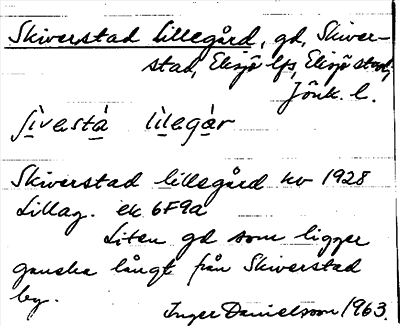 Skiverstad Lillegård, gd, Skiver-
stad, Eksjö lfs, Eksjö stad,
Jönk. l.
ʃìvəstà lìləgàr
Skiverstad lillegård hv 1928
Lillag. ek 6F9a
Liten gd som ligger
ganska långt från Skiverstad
by.
Inger Danielsson 1963.